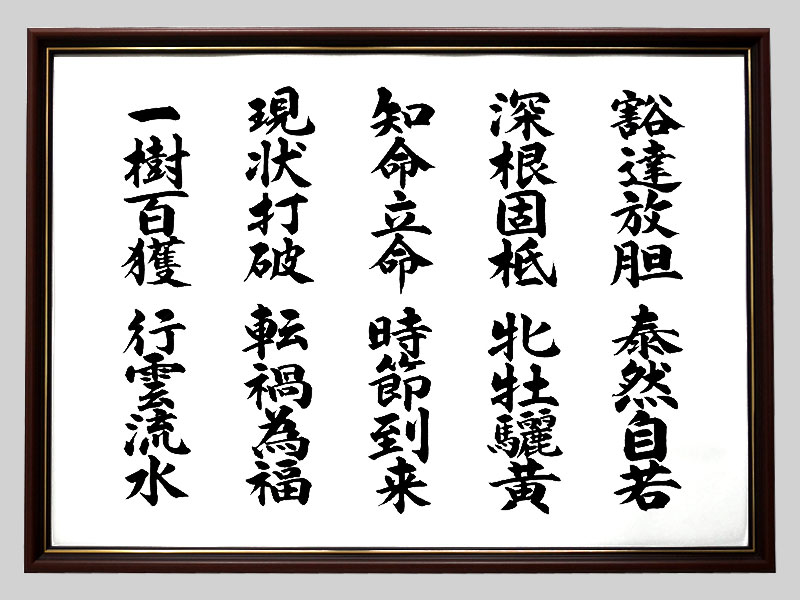 豁達放胆 泰然自若
深根固柢 牝牡驪黄
知命立命 時節到来
現状打破 転禍為福
一樹百獲 行雲流水